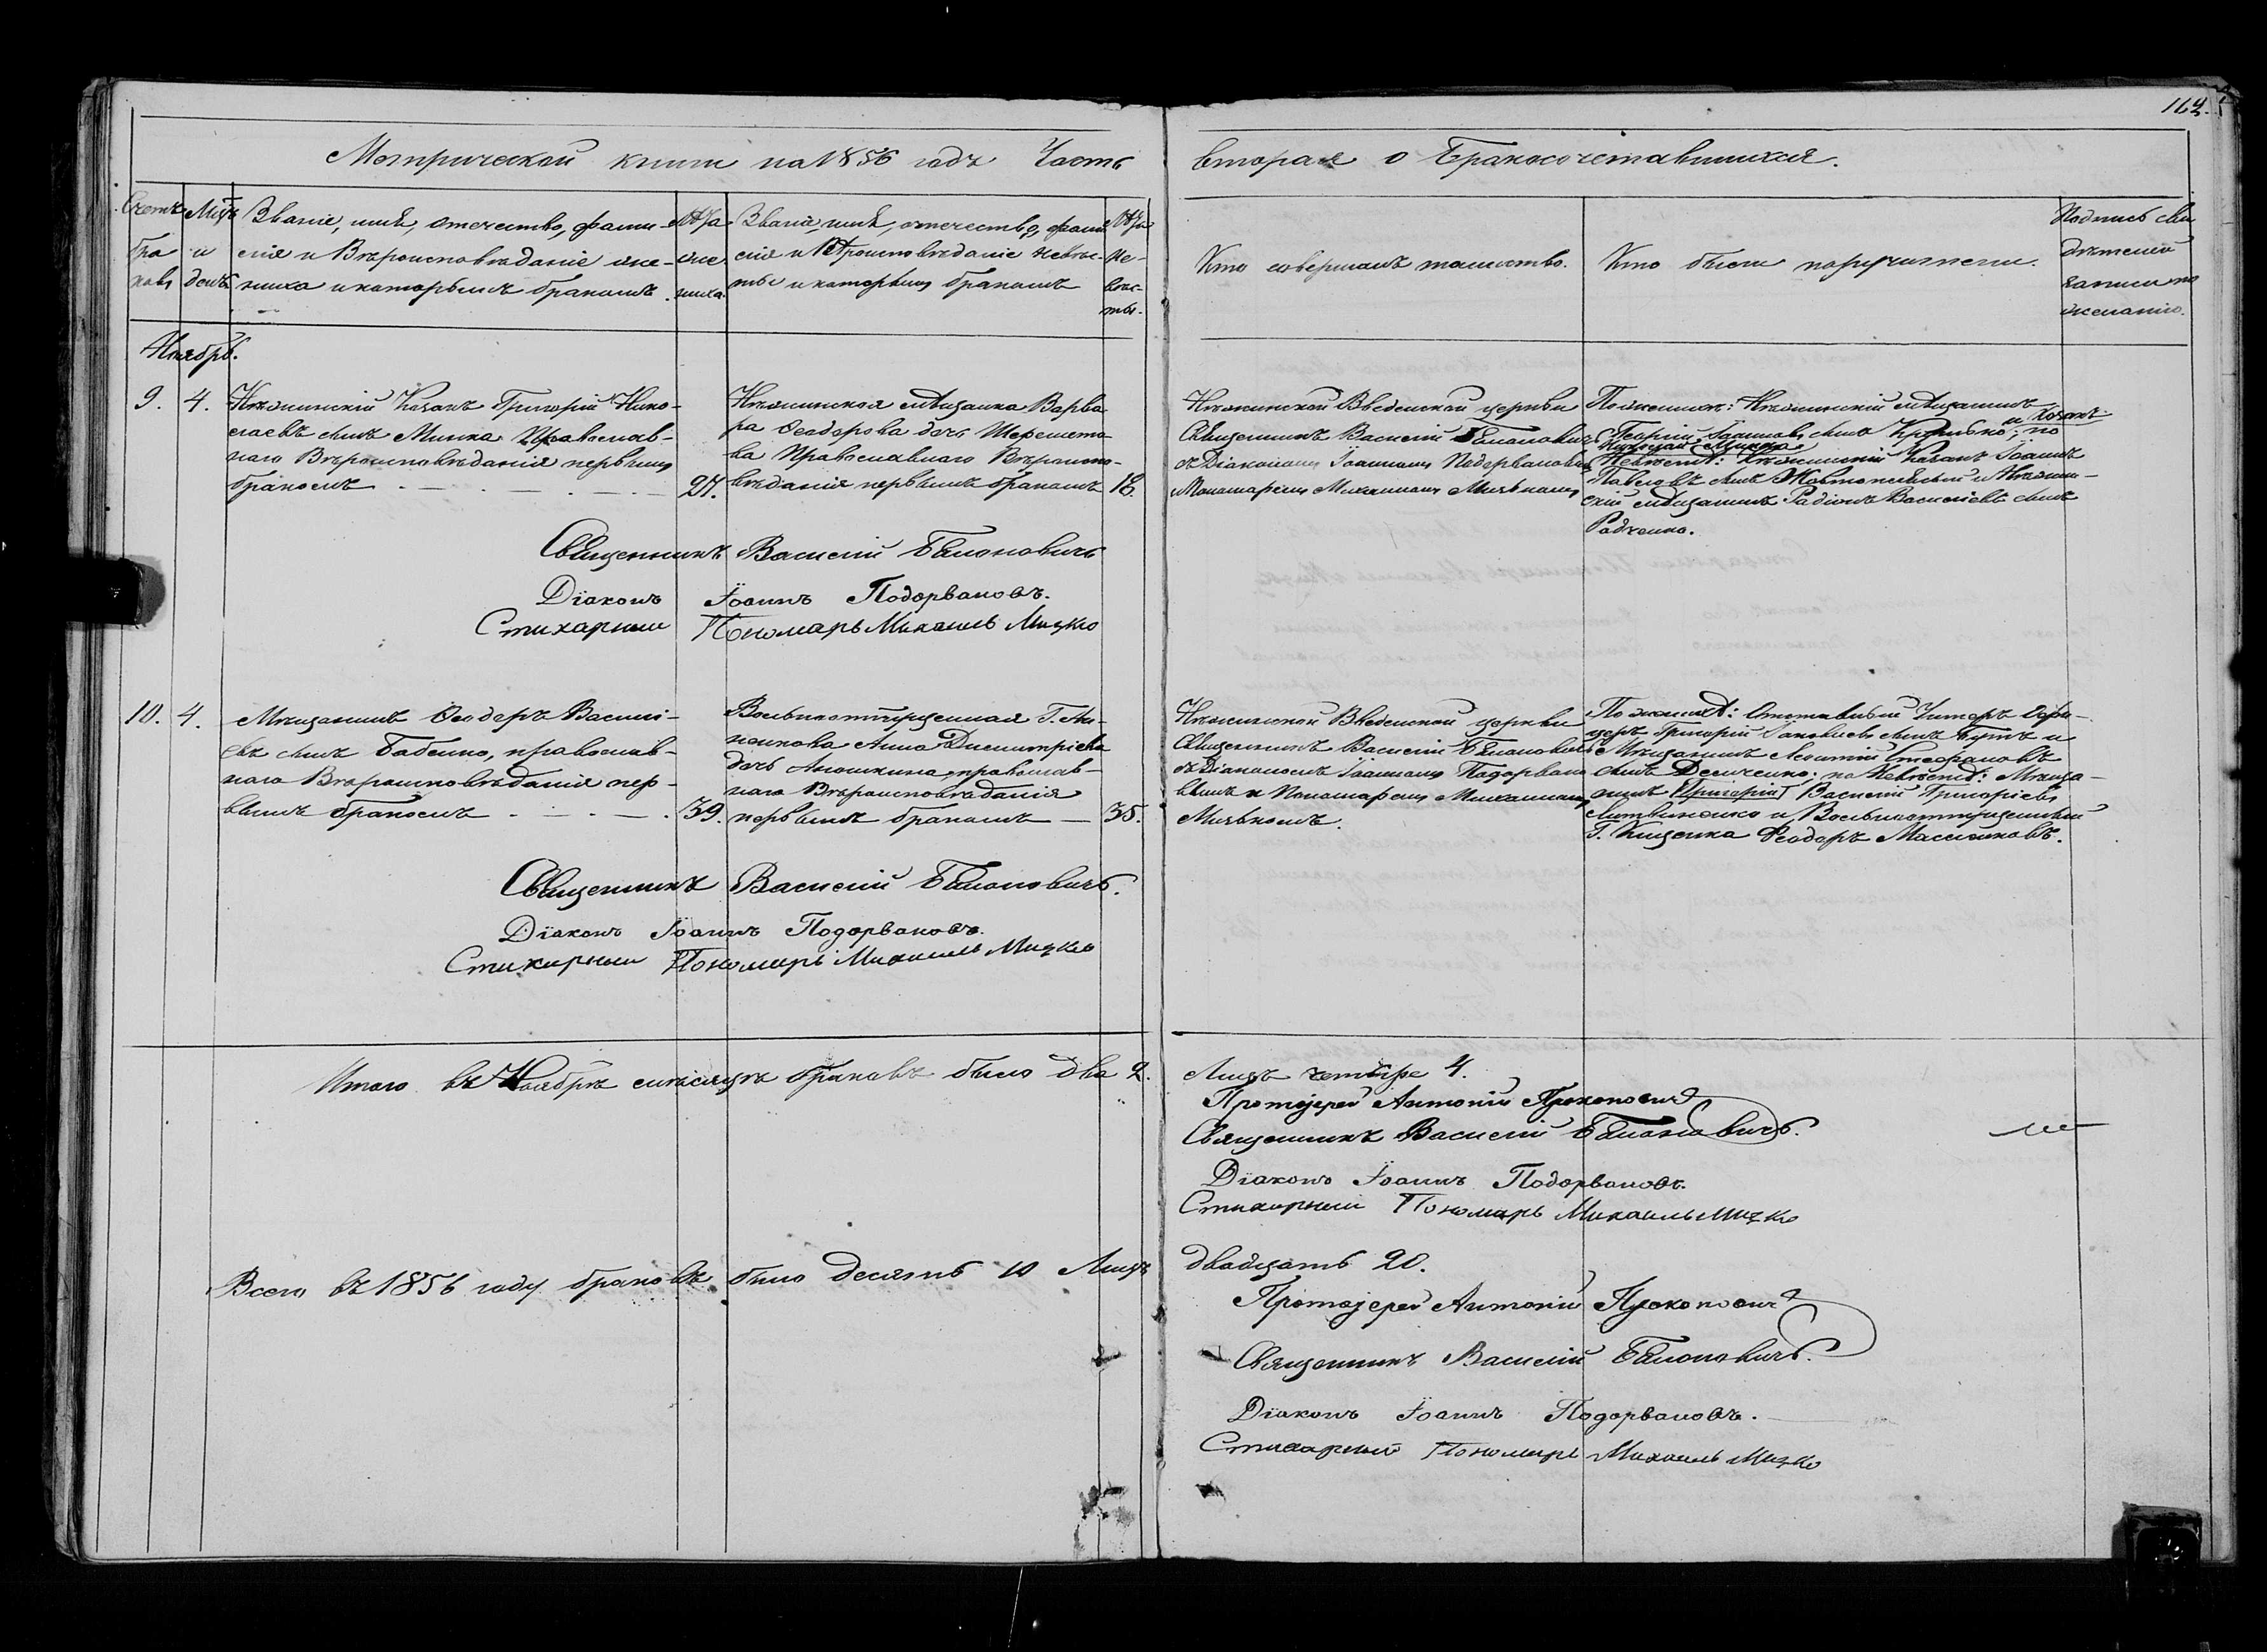 164.
Метрической книги на 1856 годъ Часть
вторая о Бракосочетавшихся.
Счетъ браковъ
Мцъ и день
Званіе, имя, отечество, фами-
лія и Вѣроисповѣданіе же-
ниха и которымъ бракомъ
Лѣта
же-
ниха.
Званіе, имя, отечество, фами-
лія и Вѣроисповѣданіе невѣс-
ты и которымъ бракомъ
Лѣта
не-
вѣс-
ты.
Кто совершалъ таинство.
Кто были поручители.
Подпись сви
дѣтелей
записи по
желанію.
Ноябрь.
9. 4.
Нѣжинскій Козакъ Григорій Нико-
лаевъ сынъ Минка Православ-
наго Вѣроисповѣданія первымъ
бракомъ 27.
Нѣжинская мѣщанка Варва
ра Ѳеодорова дочь Шеремето
ва Православнаго Вѣроиспо-
вѣданія первымъ бракомъ 18.
Нѣжинской Введенской церкви
Священникъ Василій
съ Діакономъ Іоанномъ Подорвановымъ
Пономаремъ Михаиломъ
По женихѣ: Нѣжинскій мѣщанинъ
и Козакъ
Георгій Іоанновъ сынъ по
Николай Минка
Невѣстѣ: Нѣжинскій Козакъ Іоаннъ
Павловъ сынъ и Нѣжин-
скій мѣщанинъ Радіонъ Василіевъ сынъ
Радченко.
Священникъ Василій
Діаконъ Іоаннъ Подорвановъ.
Стихарный Пономарь Михаилъ Мицко
10. 4.
Мѣщанинъ Ѳеодоръ Василі-
евъ сынъ Бабенко, православ-
наго Вѣроисповѣданія пер-
вымъ бракомъ 39.
Вольноотпущенная Г.
Анна Димитріева
дочь Аношкина, православ-
наго Вѣроисповѣданія
первымъ бракомъ — 35.
Нѣжинской Введенской церкви
Священникъ Василій
съ Діакономъ Іоанномъ Подорвано
вымъ и Пономаремъ Михаиломъ
По женихѣ: Отставный Унтеръ Офи-
церъ Григорій Іаковлевъ сынъ и
Мѣщанинъ Леонтій Стефановъ
сынъ по Невѣстѣ: Мѣща-
нинъ Григорій Василій Григоріевъ
Литвиненко и Вольноотпущенный
Г. Ѳеодоръ
Священникъ Василій
Діаконъ Іоаннъ Подорвановъ.
Стихарный Пономарь Михаилъ Мицко
Итого въ Ноябрѣ мѣсяцѣ браковъ было два 2.
Лицъ четыре 4.
Протоіерей Антоній Прокоповичъ
Священникъ Василій
Діаконъ Іоаннъ Подорвановъ.
Стихарный Пономарь Михаилъ Мицко
Всего въ 1856 году браковъ было десять 10 Лицъ
двадцать 20.
Протоіерей Антоній Прокоповичъ
Священникъ Василій
Діаконъ Іоаннъ Подорвановъ.
Стихарный Пономарь Михаилъ Мицко